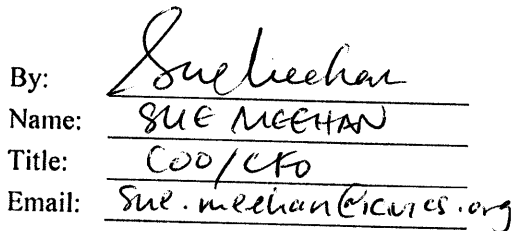 By: Sue Meehan
Name: SUE MEEHAN
Title: COO/CFO
Email: sue.meehan@icivics.org